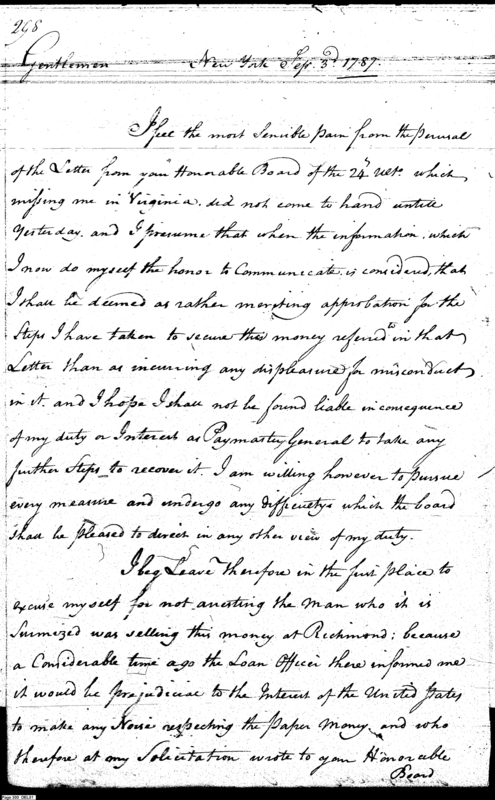 298
Gentlemen New York Sep. 3d 1787.
I feel the most Sencible pain from the perusal
of the Letter from your Honorable Board of the 24th Ulto. which
missing me in Virginia did not come to hand untill
Yesterday. and I presume that when the information, which
I now do myself the honor to Communicate, is considered, that
I shall be deemed as rather meriting approbation for the
Steps I have taken to secure this money referred to in that
Letter than as incurring any displeasure for misconduct
in it. and I hope I shall not be found liable in consequence
of my duty or Interest as Paymaster General to take any
further Steps to recover it. I am willing however to pursue
every measure and undergo any difficultys which the board
shall be pleased to direct in any other view of my duty.
I beg Leave therefore in the first place to
excuse myself for not arresting the Man who it is
Surmized was selling this money at Richmond; because
a Considerable time ago the Loan Officer there informed me
it would be prejudicial to the Interest of the United States
to make any Noise respecting the Paper Money, and who
therefore at my Solicitation wrote to your Honorable
Board